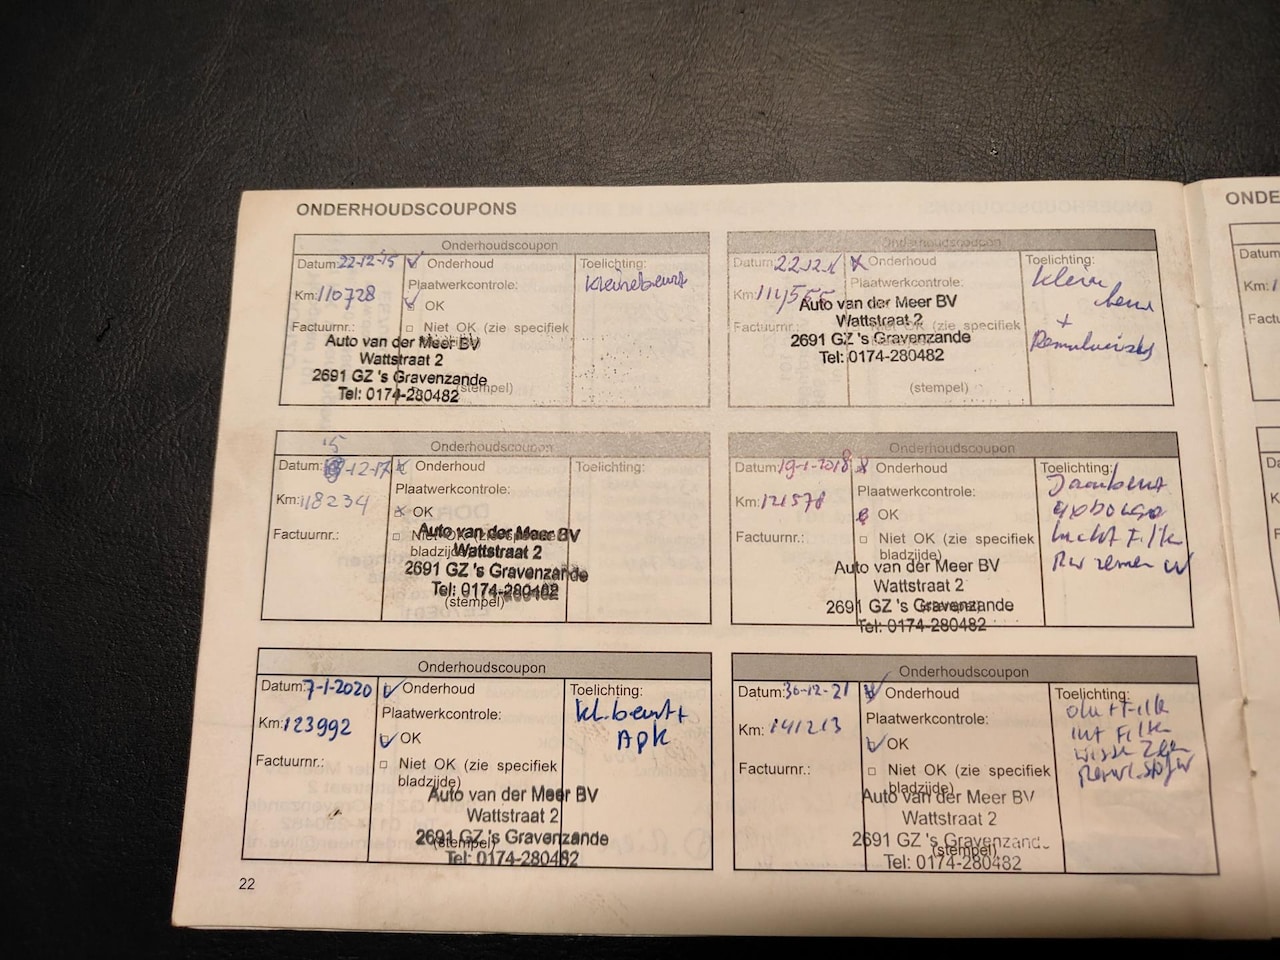 ONDERHOUDSCOUPONS
Onderhoudscoupon
Datum: 22-12-15
Onderhoud
Toelichting:
Km: 110728
Plaatwerkcontrole:
Kleinebeurt
OK
Factuurnr.:
Niet OK (zie specifiek
Auto van der Meer BV
Wattstraat 2
2691 GZ 's Gravenzande
Tel: 0174-280482
(stempel)
Onderhoudscoupon
Datum:
Onderhoud
Toelichting:
Km:
Plaatwerkcontrole:
Klein
+
OK
Factuurnr.:
Niet OK (zie specifiek
Auto van der Meer BV
Wattstraat 2
2691 GZ 's Gravenzande
Tel: 0174-280482
(stempel)
Onderhoudscoupon
Datum: -12-17
Onderhoud
Toelichting:
Km: 118234
Plaatwerkcontrole:
OK
Factuurnr.:
Niet OK (zie specifiek
bladzijde)
Auto van der Meer BV
Wattstraat 2
2691 GZ 's Gravenzande
Tel: 0174-280482
(stempel)
Onderhoudscoupon
Datum: 19-1-2018
Onderhoud
Toelichting:
Km: 121578
Plaatwerkcontrole:
OK
lucht Filter
Factuurnr.:
Niet OK (zie specifiek
bladzijde)
Auto van der Meer BV
Wattstraat 2
2691 GZ 's Gravenzande
Tel: 0174-280482
Onderhoudscoupon
Datum: 7-1-2020
Onderhoud
Toelichting:
Km: 123992
Plaatwerkcontrole:
kl. beurt +
APK
OK
Factuurnr.:
Niet OK (zie specifiek
bladzijde)
Auto van der Meer BV
Wattstraat 2
2691 GZ 's Gravenzande
(stempel)
Tel: 0174-280482
Onderhoudscoupon
Datum: 30-12-21
Onderhoud
Toelichting:
Km: 141213
Plaatwerkcontrole:
Int Filter
OK
Factuurnr.:
Niet OK (zie specifiek
bladzijde)
Auto van der Meer BV
Wattstraat 2
2691 GZ 's Gravenzande
(stempel)
Tel: 0174-280482
22
ONDE
Datum
Km:
Factu